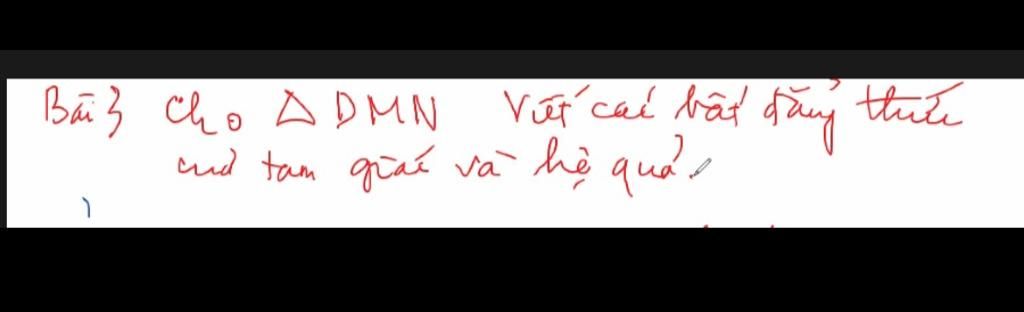 Bài 3 Cho △ DMN Viết các bất đẳng thức
của tam giác và hệ quả.